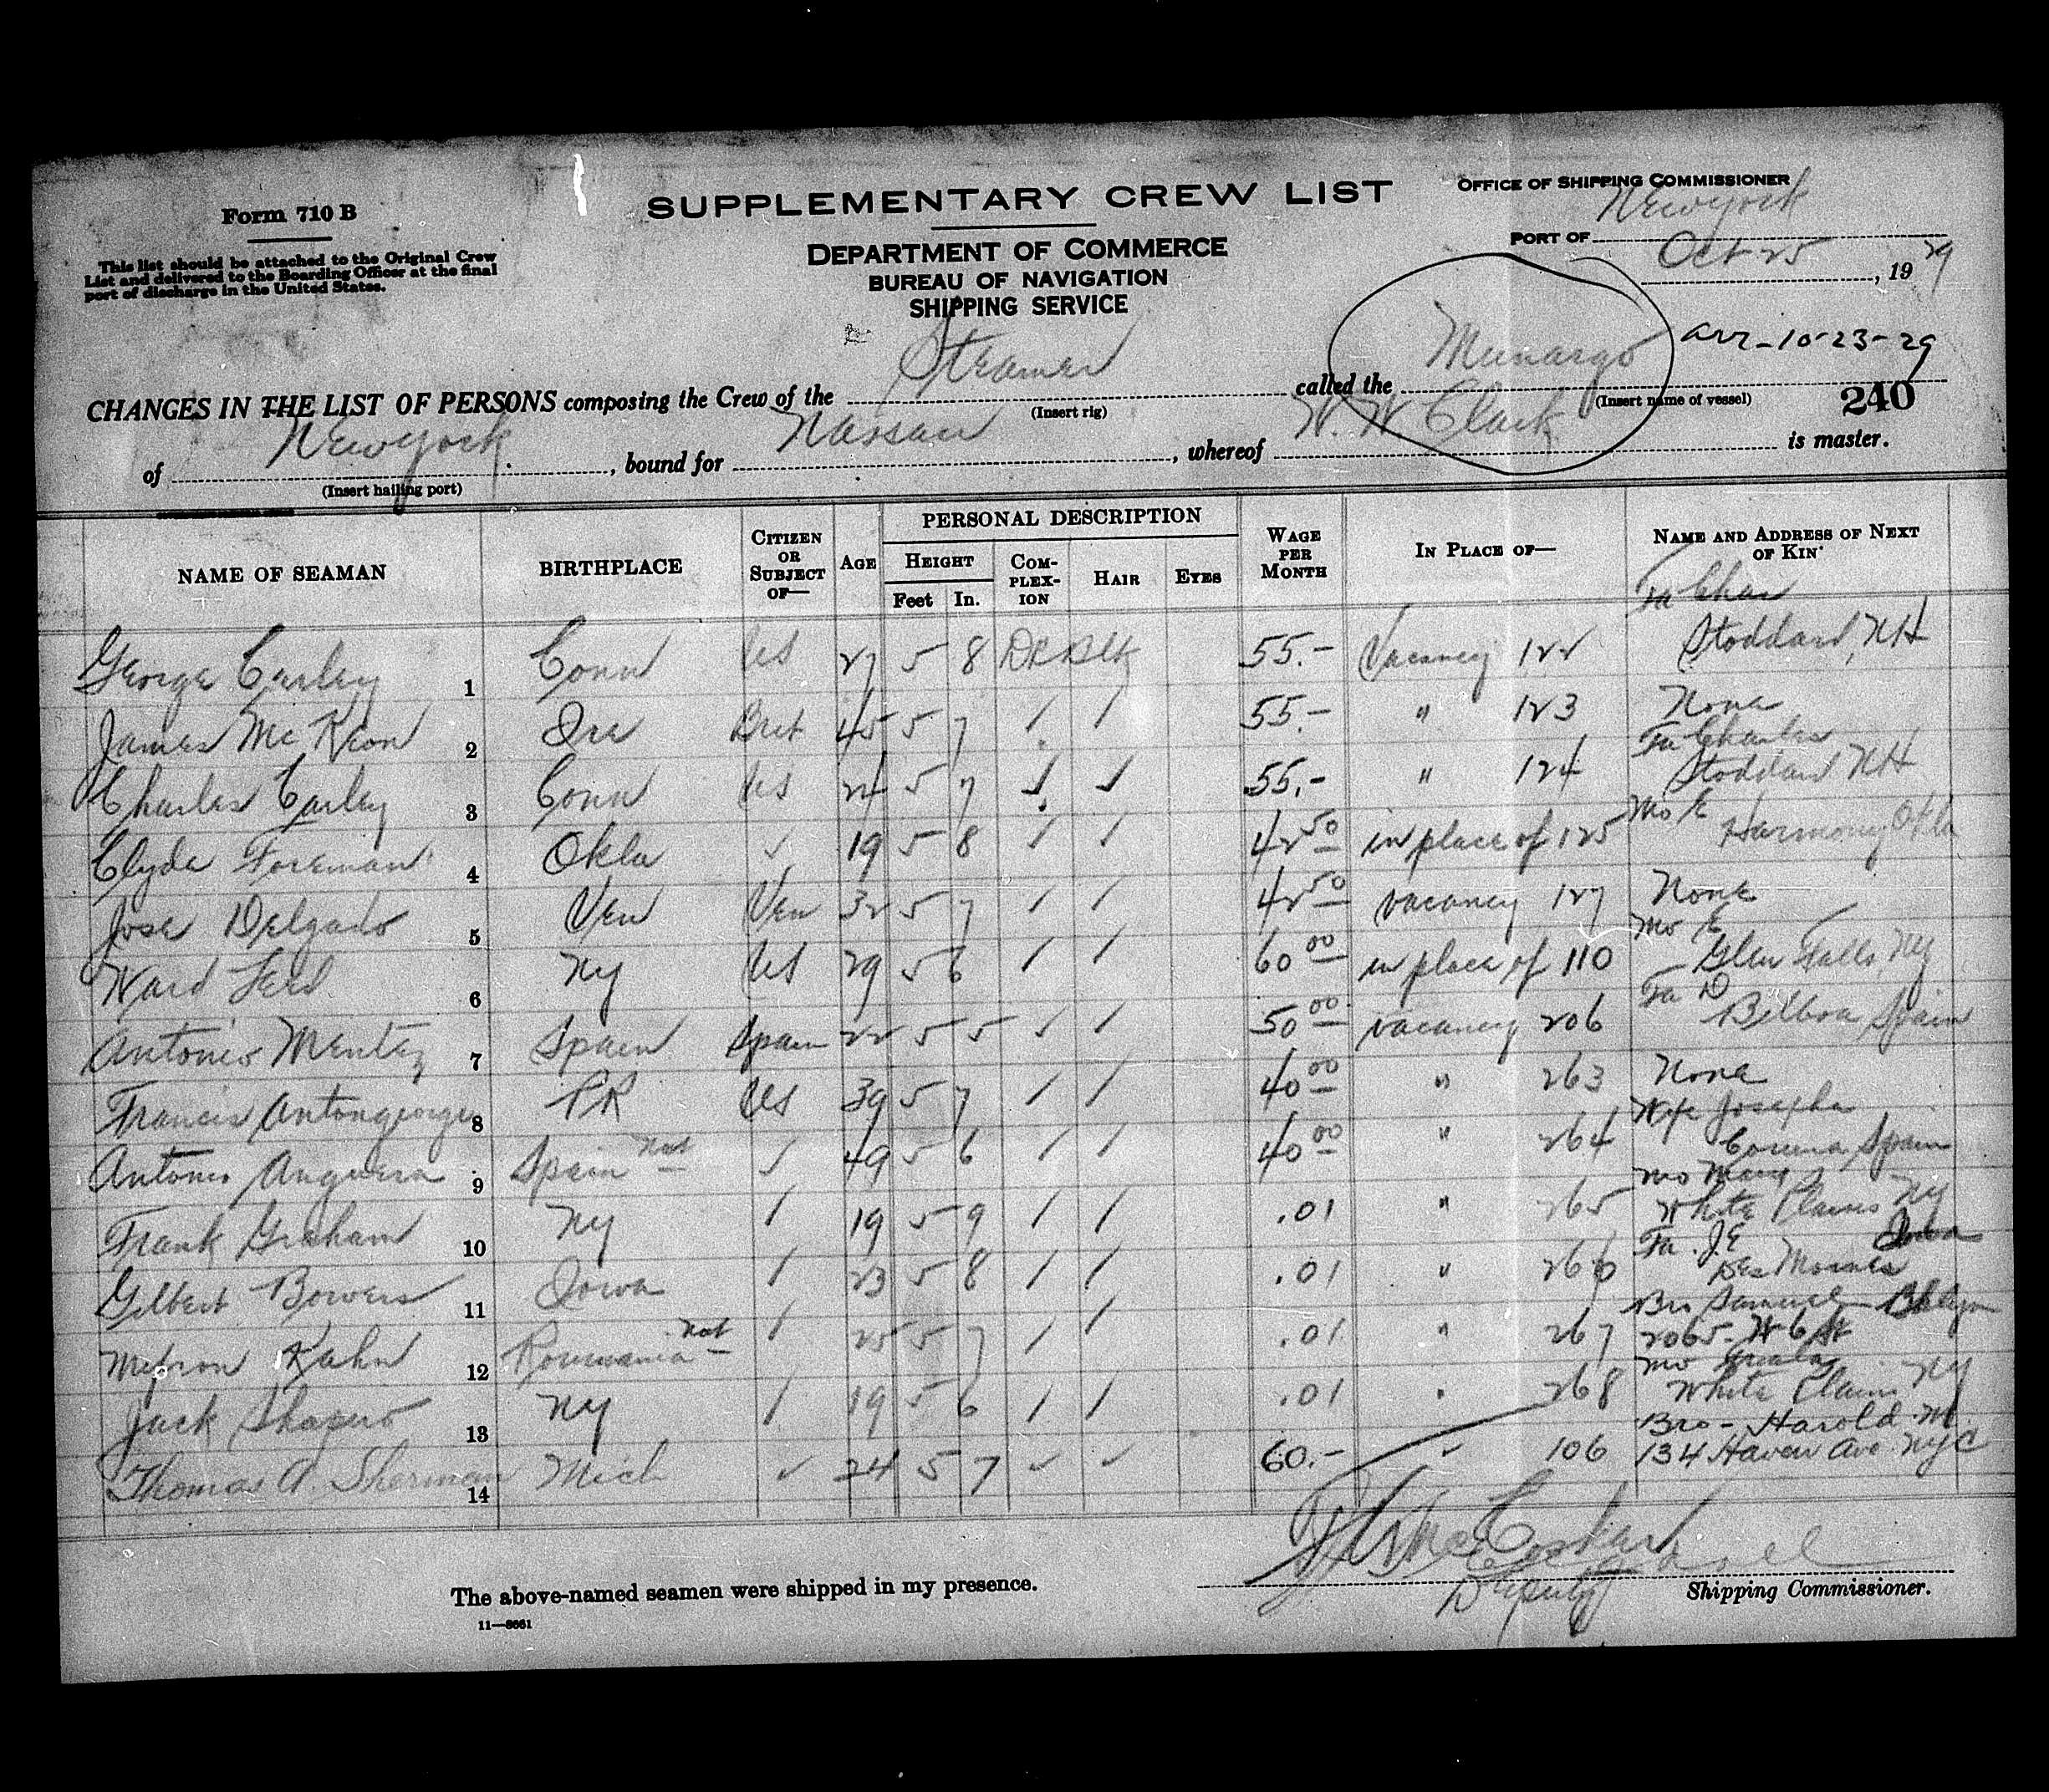 Form 710 B
This list should be attached to the Original Crew
List and delivered to the Boarding Officer at the final
port of discharge in the United States.
SUPPLEMENTARY CREW LIST
DEPARTMENT OF COMMERCE
BUREAU OF NAVIGATION
SHIPPING SERVICE
OFFICE OF SHIPPING COMMISSIONER
PORT OF New York
Oct 25, 1929
arr-10-23-29
CHANGES IN THE LIST OF PERSONS composing the Crew of the Steamer called the Munargo
(Insert rig) (Insert name of vessel) 240
of New York, bound for Nassau, whereof W. W Clark is master.
(Insert hailing port)
NAME OF SEAMAN BIRTHPLACE CITIZEN OR SUBJECT OF— AGE PERSONAL DESCRIPTION HEIGHT Feet In. COMPLEXION HAIR EYES WAGE PER MONTH IN PLACE OF— NAME AND ADDRESS OF NEXT OF KIN
George Carley 1 Conn US 27 5 8 DK Blk 55.- Vacancy 122 Fa Chas Stoddard, NH
James Mc Keon 2 Ire Brit 45 5 7 / / 55.- " 123 None
Charles Carley 3 Conn US 24 5 7 / / 55.- " 124 Fa Charles Stoddard NH
Clyde Foreman 4 Okla ✓ 19 5 8 / / 42 50 in place of 125 Mo E Harmony Okla
Jose Delgado 5 Ven Ven 32 5 7 / / 42 50 vacancy 127 None
Ward 6 NY US 29 5 6 / / 60 00 in place of 110 Mo E Glen Falls, NY
Antonio Mentez 7 Spain Spain 22 5 5 ✓ / 50 00 vacancy 206 Fa D Bilboa, Spain
Francis Antongeorge 8 PR US 39 5 7 / / 40 00 " 263 None
Antonio Anguera 9 Spain Nat ✓ 49 5 6 / / 40 00 " 264 Wife Josepha Coruna, Spain
Frank Graham 10 NY / 19 5 9 / / .01 " 265 Mo Mary White Plains NY
Gilbert Bowers 11 Iowa / 23 5 8 / / .01 " 266 Fa. J E Des Moines Iowa
Kahn 12 Roumania Nat / 25 5 7 / / .01 " 267 Bro Samuel Bklyn 2065- W 6 St
Jack Shapero 13 NY / 19 5 6 / / .01 " 268 Mo White Plains NY
Thomas A. Sherman 14 Mich ✓ 24 5 7 ✓ ✓ 60.- " 106 Bro - Harold M. 134 Haven Ave. NYC
The above-named seamen were shipped in my presence.
Deputy Shipping Commissioner.
11—8661